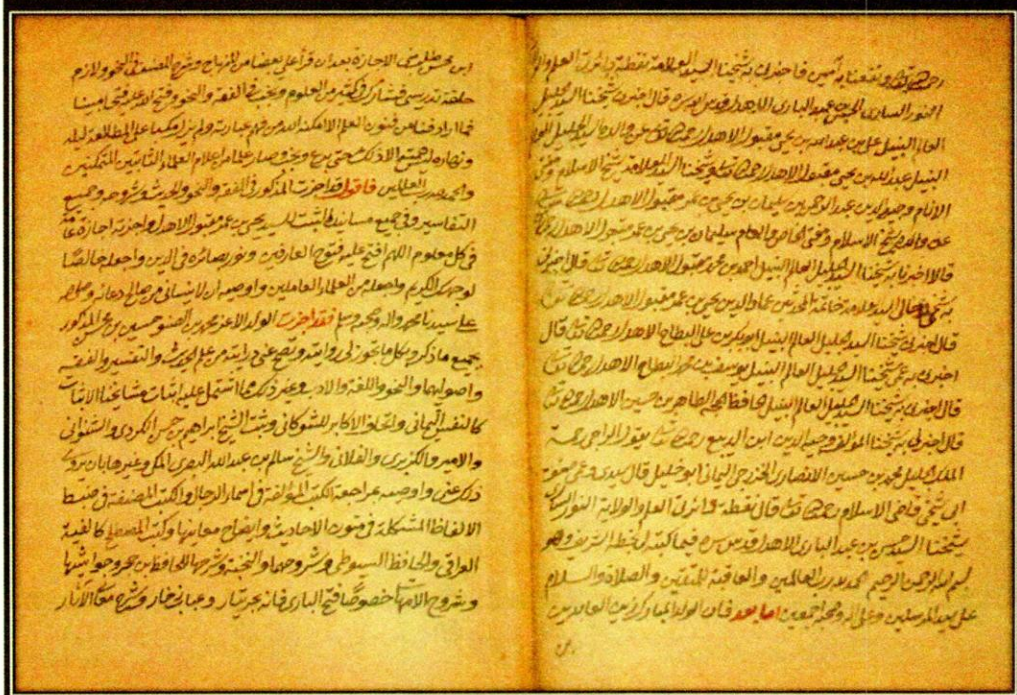 رحمه الله تعالى ونفعنا به آمين فاخبرنى به شيخنا السيد العلامة نقطة دائرة العلم
النور السارى الحسن بن عبد البارى الاهدل قدس سره قال اخبرنى شيخنا السيد الجليل
العالم النبيل على بن عبد الله بن يحيى مقبول الاهدل رحمه الله تعالى عن والده الجليل
النبيل عبد الله بن يحيى مقبول الاهدل رحمه الله تعالى وشيخنا السيد العلامة شيخ الاسلام
الانام وجيه الدين عبد الرحمن بن سليمان بن يحيى بن عمر مقبول الاهدل رحمه الله تعالى
عن والده شيخ الاسلام ومفتى الخاص والعام سليمان بن يحيى بن عمر مقبول الاهدل
قالا اخبرنا به شيخنا السيد الجليل العالم النبيل احمد بن محمد مقبول الاهدل رحمه الله تعالى قال اخبرنى
به السيد العلامة خاتمة المحدثين عماد الدين يحيى بن عمر مقبول الاهدل رحمه الله تعالى
قال اخبرنى شيخنا السيد الجليل العالم النبيل ابو بكر بن على البطاح الاهدل رحمه الله تعالى قال
اخبرنى به عمى شيخنا السيد الجليل العالم النبيل يوسف بن محمد البطاح الاهدل رحمه الله تعالى
قال اخبرنى به شيخنا السيد الجليل العالم النبيل الحافظ الحجة الطاهر بن حسين الاهدل رحمه الله تعالى
قال اخبرنى به شيخنا المؤلف وجيه الدين ابن الديبع رحمه الله تعالى يقول الراجى رحمة
الملك الجليل محمد بن حسين الانصارى الخزرجى اليمانى ابو خليل قال سيدى وعمى صنو
ابى شيخى قاضى الاسلام رحمه الله تعالى قال نقطة دائرتى العلم والولاية النور السارى
شيخنا السيد حسن بن عبد البارى الاهدل قدس سره فيما كتبه لى بخطه الشريف وهو
بسم الله الرحمن الرحيم الحمد لله رب العالمين والعاقبة للمتقين والصلاة والسلام
على سيد المرسلين وعلى اله وصحبه اجمعين اما بعد فان الولد المبارك زين العابدين
ابن محسن طلب منى الاجازة بعد ان قرأ على بعضا من المنهاج وشرح المصنف فى النحو ولازم
حلقة تدريسى فشارك فى كثير من العلوم وبحث فى الفقه والنحو وفتح الله عليه فتحا مبينا
فما اراد فنا من فنون العلم الا امكنه الله من فهم عبارته ولم يزل مكبا على المطالعة ليله
ونهاره لا همة له الا ذلك حتى برع وبحث وصار علما من اعلام العلماء الثابتين المتمكنين
والحمد لله رب العالمين فاقول قد اجزت المذكور فى الفقه والنحو والحديث وشروحه وجميع
التفاسير وفى جميع مسانيد ثبت السيد يحيى بن عمر مقبول الاهدل واجزته اجازة عامة
فى كل معلوم اللهم افتح عليه فتوح العارفين ونور بصائره فى الدين واجعله خالصا
لوجهك الكريم واجعله من العلماء العاملين واوصيه ان لا ينسانى من صالح دعائه وصلى الله
على سيدنا محمد واله وصحبه وسلم فقد اجزت الولد الاعز محمد بن الصنو حسين بن محسن المذكور
بجميع ما ذكر وبكل ما تجوز لى روايته وتصح عنى درايته من علم الحديث والتفسير والفقه
واصولهما والنحو واللغة والادب وغير ذلك مما اشتمل عليه اثبات مشايخنا الاثبات
كالنفس اليمانى واتحاف الاكابر للشوكانى وثبت الشيخ ابراهيم بن حسن الكردى والشنوانى
والامير والكزبرى والفلانى والشيخ سالم بن عبد الله البصرى المكى وغيرها بان يروى
ذلك عنى واوصيه بمراجعة الكتب المؤلفة فى اسماء الرجال والكتب المصنفة فى ضبط
الالفاظ المشكلة فى متون الاحاديث وايضاح معانيها وكتب المصطلح كالفية
العراقى والحافظ السيوطى وشروحهما والنخبة وشرحها للحافظ بن حجر وحواشيها
وشروح الامهات خصوصا فتح البارى فانه بحر تيار وعباب زخار وشرح معانى الآثار